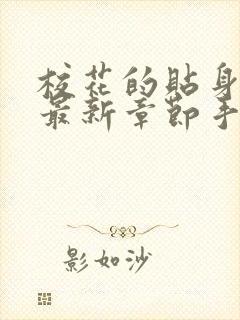 校花的貼身
最新章節手
影如沙